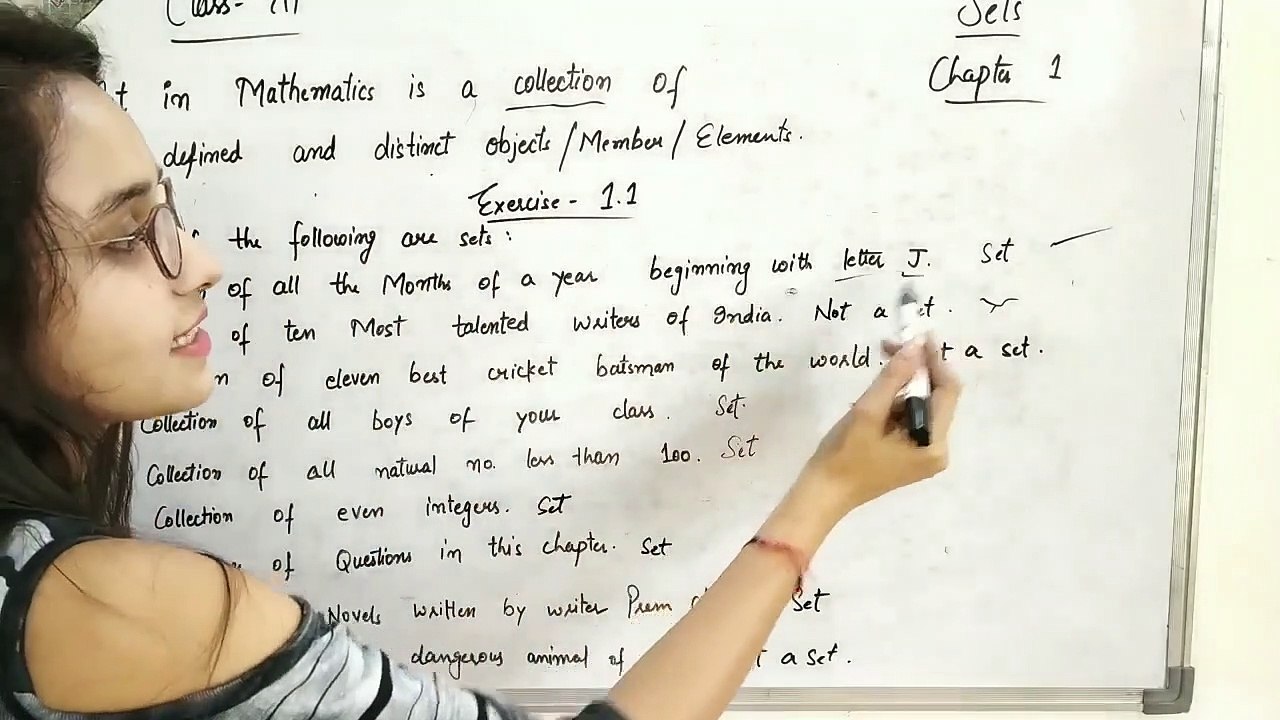 Class-
Sets
Chapter 1
in Mathematics is a collection of
defined and distinct objects/Member/Elements.
Exercise- 1.1
the following are sets:
of all the Months of a year beginning with letter J. Set
of ten Most talented writers of India. Not a set.
of eleven best cricket batsman of the world. a set.
Collection of all boys of your class. Set.
Collection of all natural no. less than 100. Set
Collection of even integers. Set
of Questions in this chapter. Set
Novels written by writer Prem Set
dangerous animal of a set.